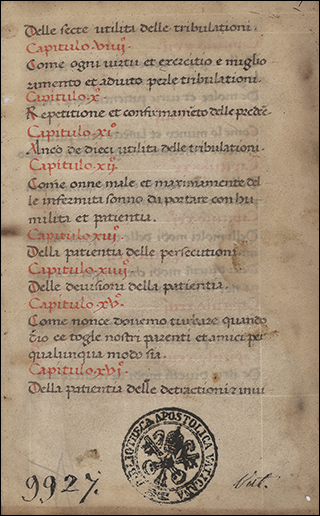 Delle secte utilita delle tribulationi.
Capitulo .viiij.
Come ogni virtu et exercitio e miglio
ramento et adiuto per le tribulationi.
Capitulo .xº
Repetitione et confirmanieto delle prede.
Capitulo .xiº
Anco de dieci utilita delle tribulationi.
Capitulo .xij.
Come onne male et maximamente del
le infermita sonno da portare con hu
milita et patientia.
Capitulo .xiij.
Della patientia delle persecutioni
Capitulo .xiiij.
Delle derisioni della patientia.
Capitulo .xvº.
Come non ce dovemo turbare quando
dio ce togle nostri parenti et amici per
qualunqua modo sia.
Capitulo .xvi.
Della patientia delle detractioni z inui
BIBLIOTHECA APOSTOLICA VATICANA
9927.
Vat.